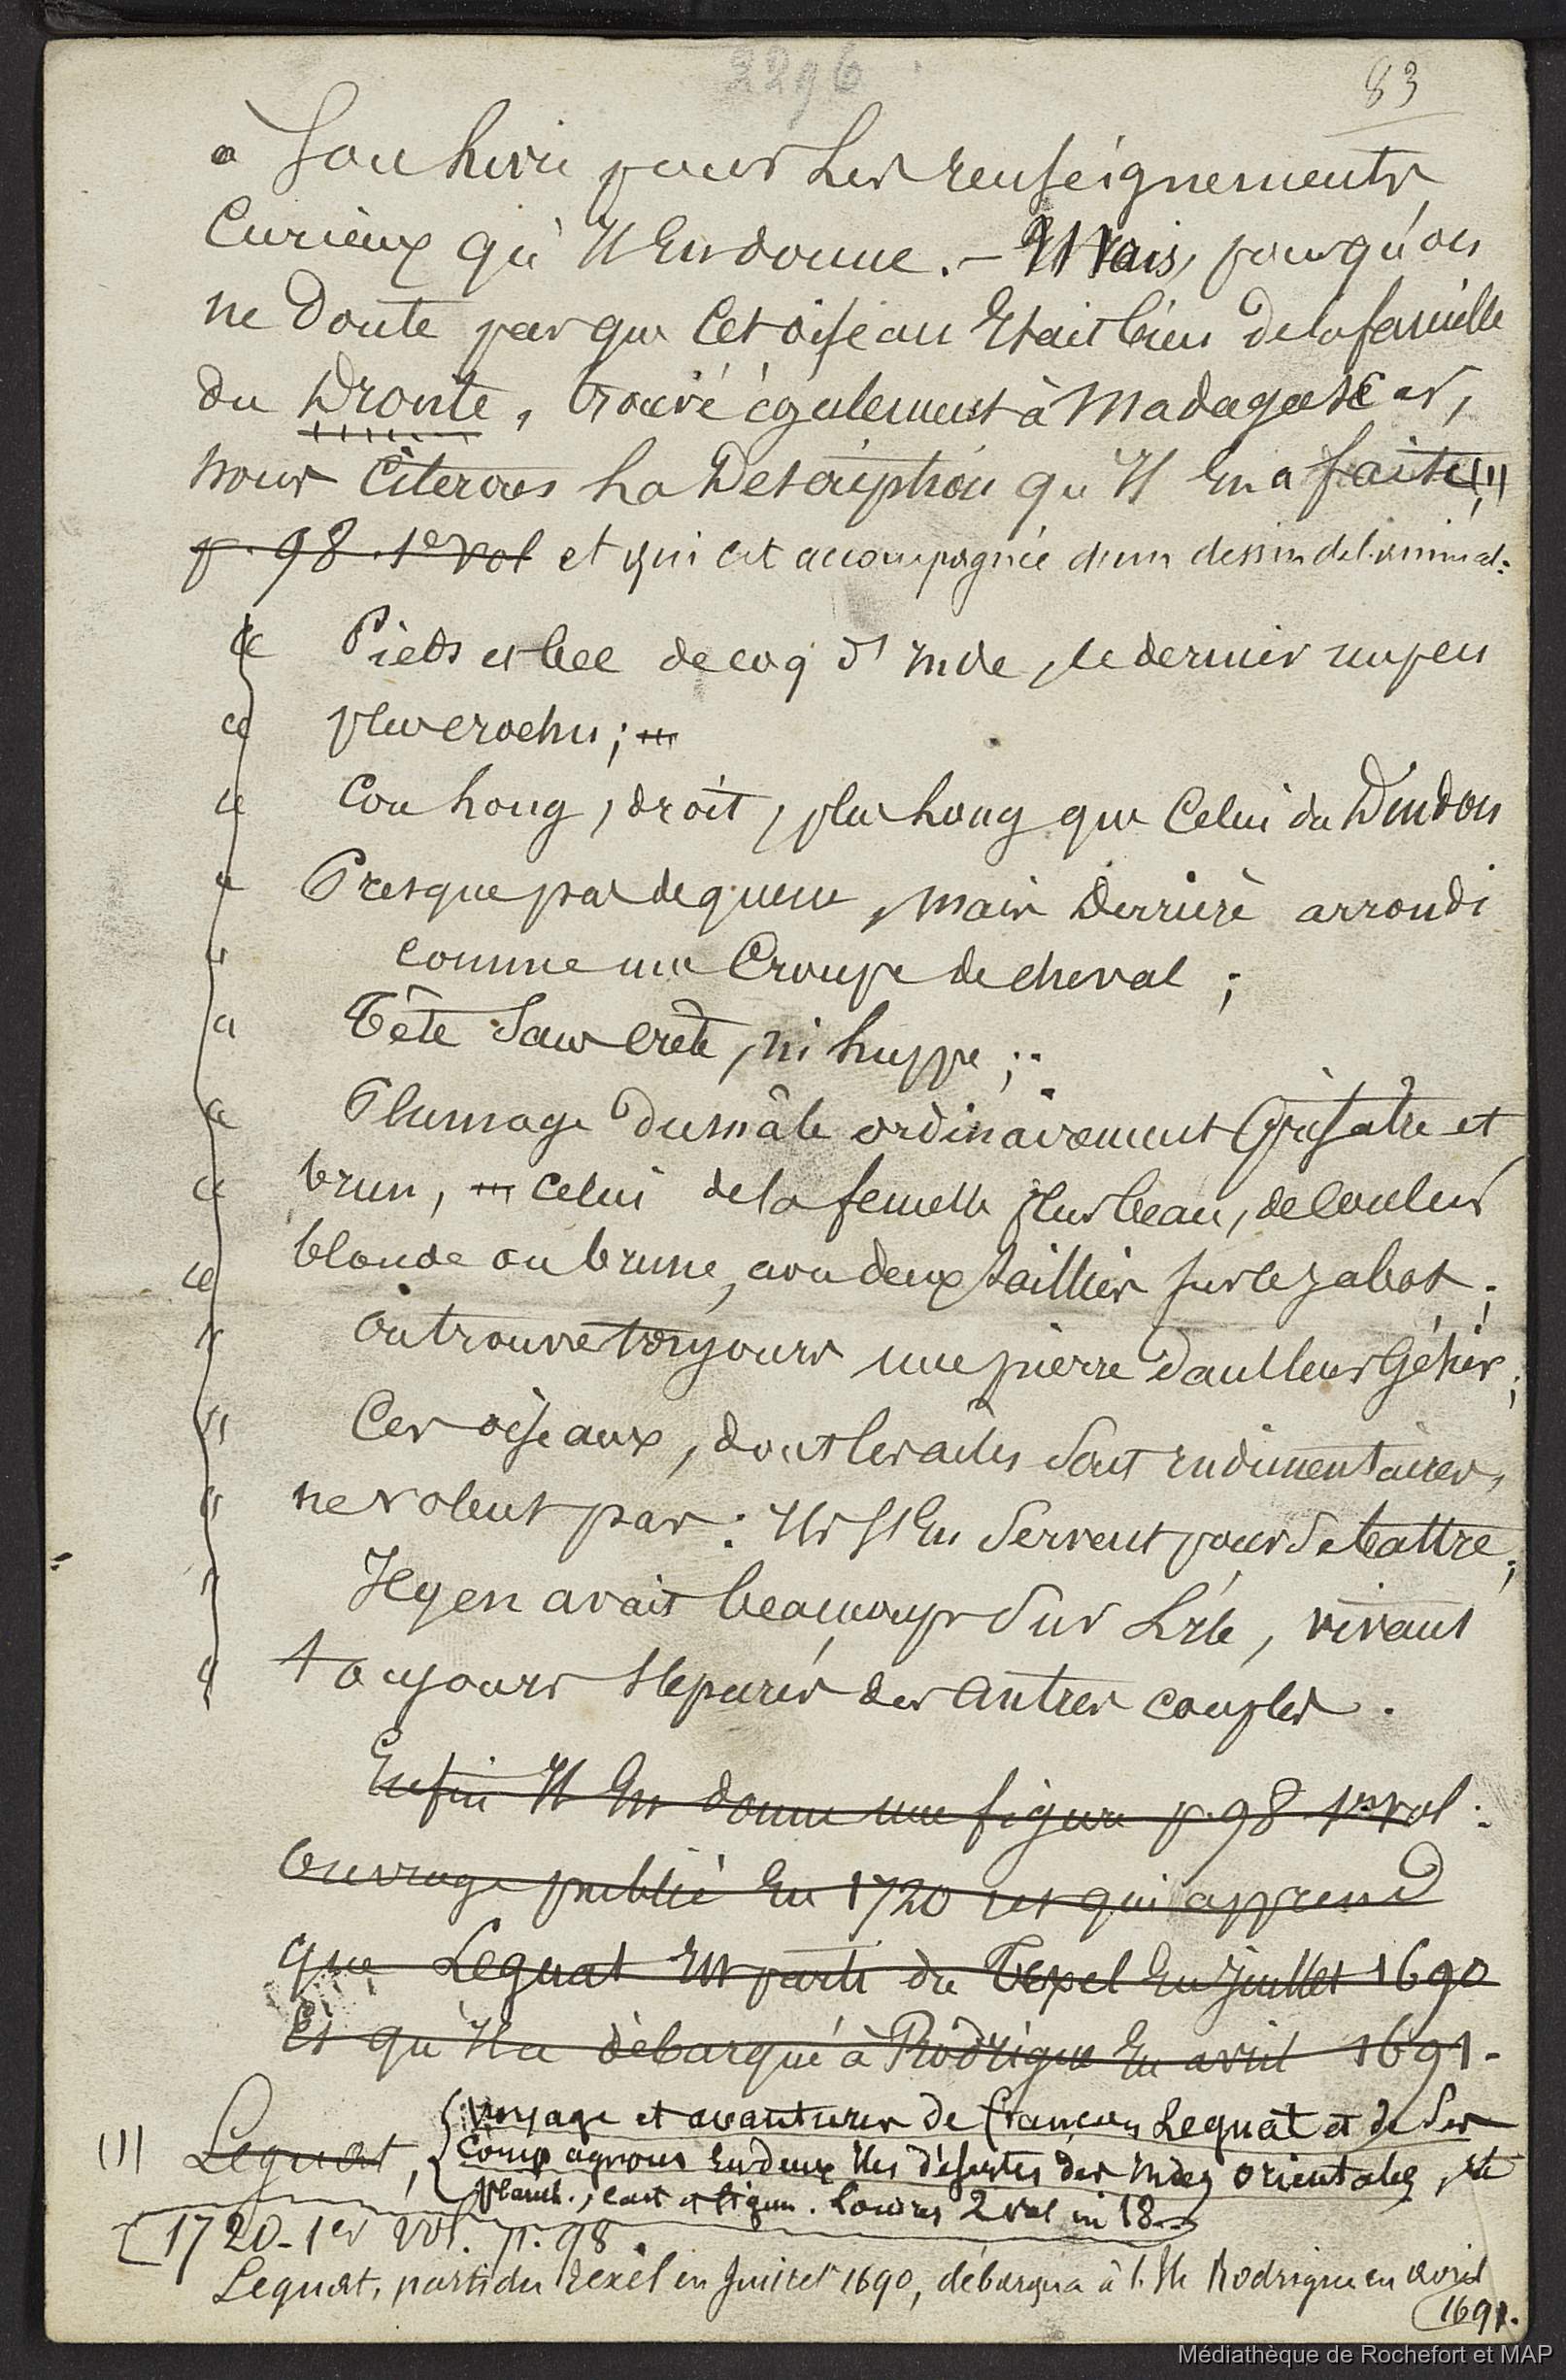 2296
83
à son livre pour les renseignements
curieux qu'Il En donne. - Mais, pour qu'on
ne Doute pas que Cet oiseau Etait bien de la famille
du Dronte, trouvé également à Madagascar,
nous Citerons La Description qu'Il En a faite (1)
p. 98. 1er vol et qui est accompagnée d'un dessin de l'animal:
« Pieds et bec de coq d'Inde, le dernier un peu
« plus crochu;
« Cou Long, droit, plus Long que Celui du Dindon
« Presque pas de queue, mais Derrière arrondi
« comme une Croupe de cheval;
« Tête Sans crête, ni huppe;
« Plumage du mâle ordinairement Grisatre et
« brun, celui de la femelle plus beau, de couleur
« blonde ou brune, avec deux saillies sur le jabot;
« on trouve toujours une pierre dans leur Gésier;
« Ces oiseaux, dont les ailes Sont rudimentaires,
« ne volent pas: Ils S'En Servent pour Se battre;
« Il y en avait beaucoup Sur L'île, vivant
« toujours séparés des autres couples.
Enfin Il En donne une figure p. 98 1er vol:
Ouvrage publié En 1720 et qui apprend
que Leguat Est parti du Texel En Juillet 1690
Et qu'Il a débarqué à Rodrigue En avril 1691-
(1) Leguat, { Voyage et avantures de François Leguat et de Ses
Compagnons En deux Iles désertes des Indes orientales,
planch., cart et figur. Londres 2 vol in 18
[1720 - 1er vol. p. 98.
Leguat, parti du Texel en Juillet 1690, débarqua à l'Ile Rodrigue en avril
1691.
Médiathèque de Rochefort et MAP